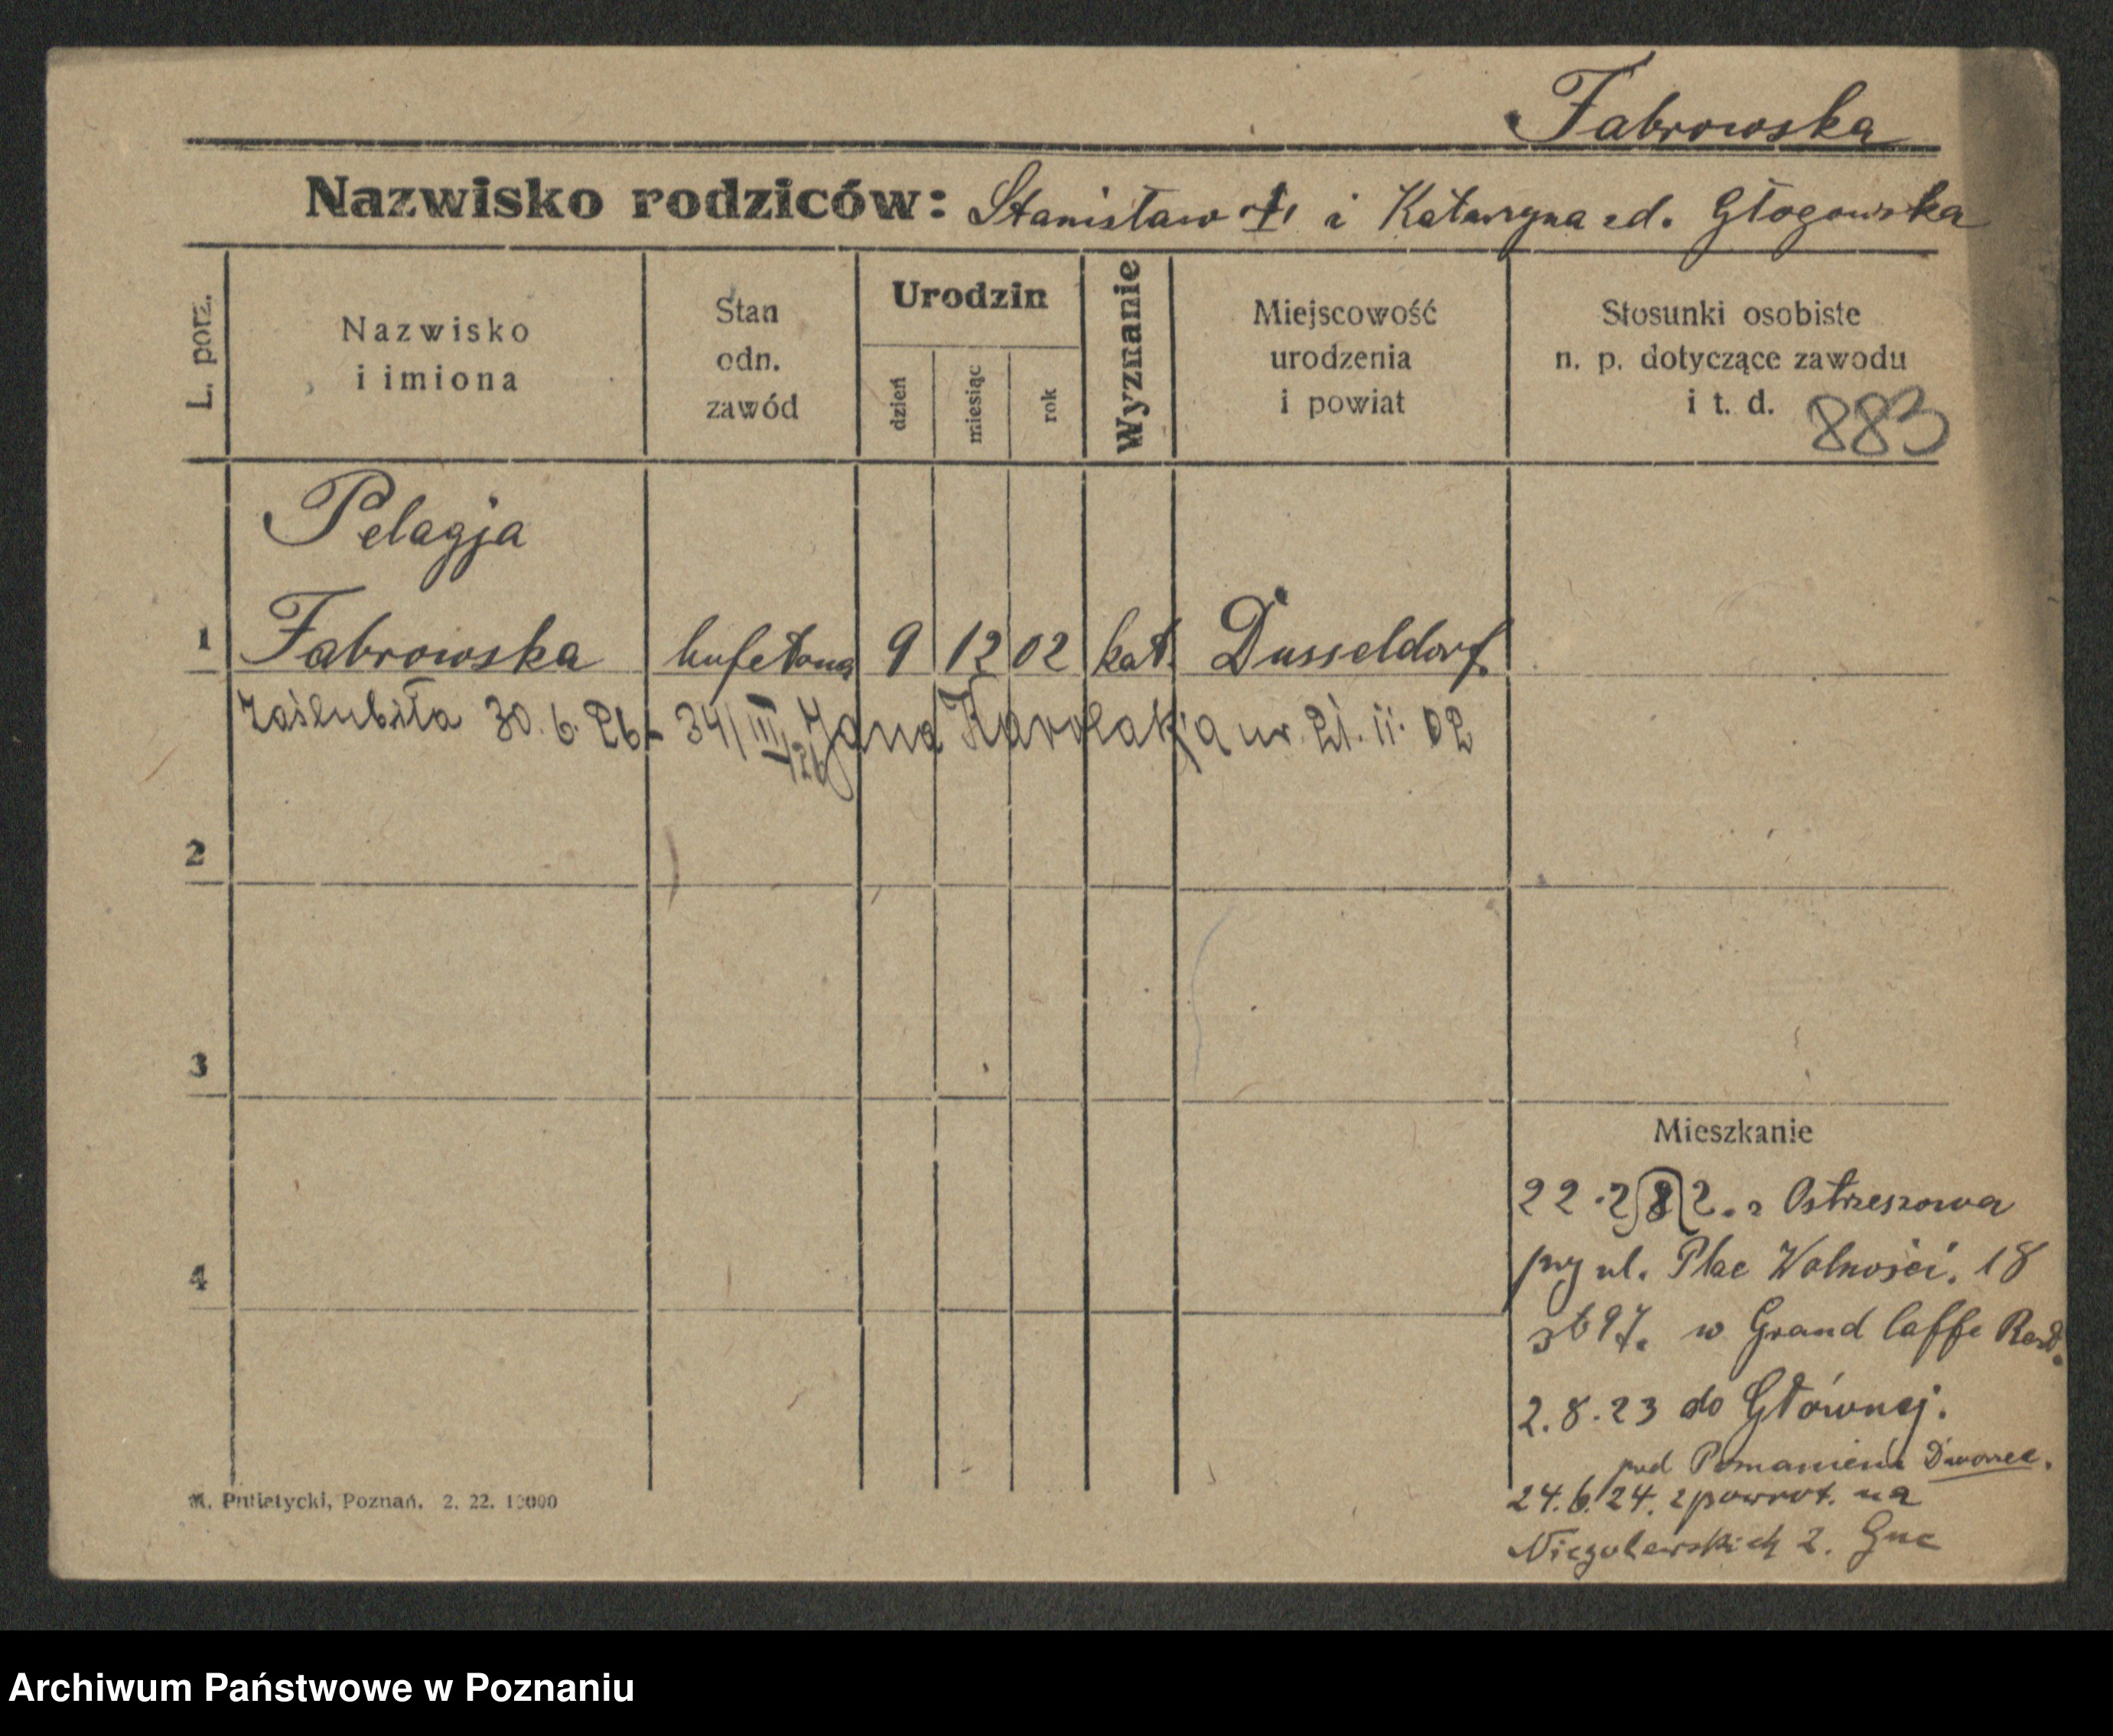 Fabrowska
Nazwisko rodziców: Stanisław † i Katarzyna zd. Głogowska
L. porz.
Nazwisko
i imiona
Stan
odn.
zawód
Urodzin
dzień
miesiąc
rok
Wyznanie
Miejscowość
urodzenia
i powiat
Stosunki osobiste
n. p. dotyczące zawodu
i t. d.
883
Pelagja
1 Fabrowska bufetowa 9 12 02 kat. Dusseldorf.
zaślubiła 30.6.26 - 34/III/26 Jana Karolak'a ur. 21.11.02
2
3
4
Mieszkanie
z Ostrzeszowa
przy ul. Plac Wolności. 18
w Grand Caffe Rest.
2.8.23 do Głównej.
pod Dworzec.
24.6.24. zpowrot. na
Niegolewskich 2. Gne
Poznań. 2. 22.
Archiwum Państwowe w Poznaniu